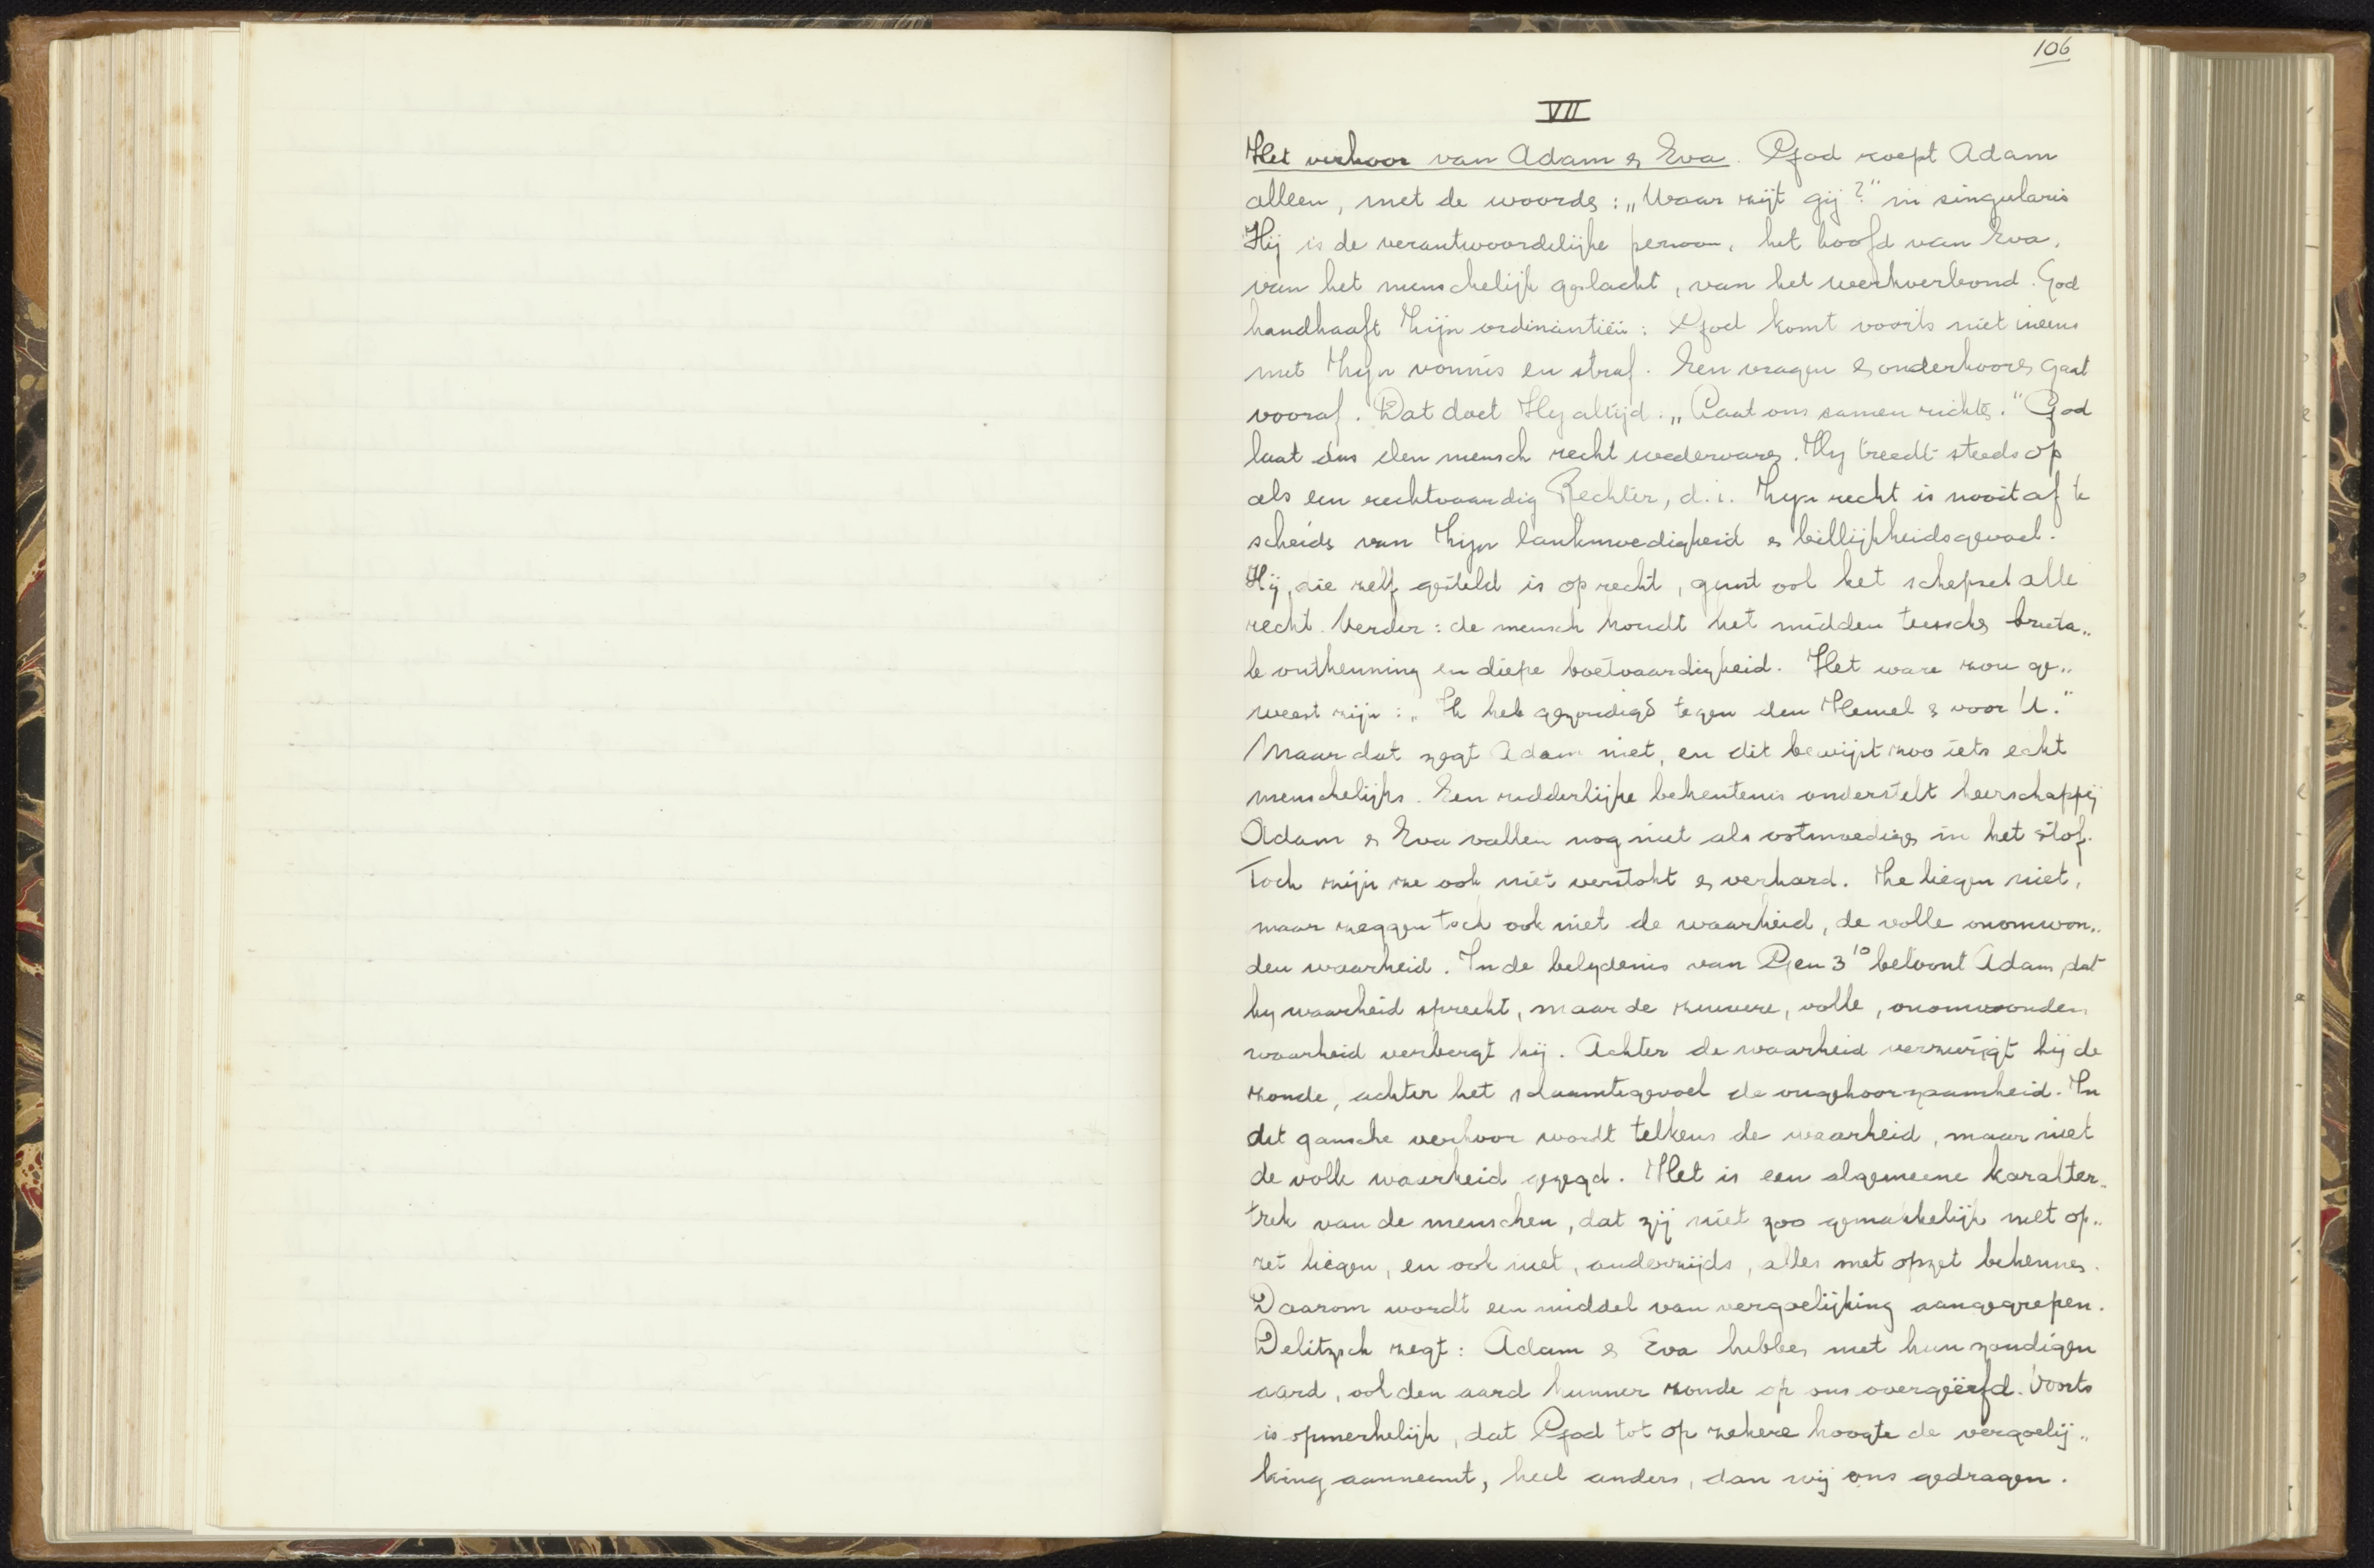 106
VII
Het verhoor van Adam & Eva. God roept Adam
alleen, met de woorden: „Waar zijt gij?" in singularis
Hij is de verantwoordelijke persoon, het hoofd van Eva,
van het menschelijk geslacht, van het werkverbond. God
handhaaft Zijn ordinantiën: God komt voorts niet ineens
met Zijn vonnis en straf. Een vragen & onderhooren gaat
vooraf. Dat doet Hy altijd. „Laat ons samen richten." God
laat dus den mensch recht wedervaren. Hy treedt steeds op
als een rechtvaardig Rechter, d.i. Zijn recht is nooit af te
scheiden van Zijn lankmoedigheid & billijkheidsgevoel.
Hij, die zelf gesteld is op recht, gunt ook het schepsel alle
recht. Verder: de mensch houdt het midden tusschen bruta„
le ontkenning en diepe boetvaardigheid. Het ware zou ge„
weest zijn: „Ik heb gezondigd tegen den Hemel & voor U."
Maar dat zegt Adam niet, en dit bewijst zoo iets echt
menschelijks. Een ridderlijke bekentenis onderstelt heerschappij
Adam & Eva vallen nog niet als ootmoedigen in het stof.
Toch zijn ze ook niet verstokt & verhard. Ze liegen niet,
maar zeggen toch ook niet de waarheid, de volle onomwon„
den waarheid. In de belydenis van Gen 3¹⁰ betoont Adam, dat
hy waarheid spreekt, maar de zuivere, volle, onomwonden
waarheid verbergt hij. Achter de waarheid verzwijgt hij de
zonde, achter het schaamtegevoel de ongehoorzaamheid. In
dit gansche verhoor wordt telkens de waarheid, maar niet
de volle waarheid gezegd. Het is een algemeene karakter„
trek van de menschen, dat zij niet zoo gemakkelijk met op„
zet liegen, en ook niet, anderzijds, alles met opzet bekennen.
Daarom wordt een middel van vergoelijking aangegrepen.
Delitzsch zegt: Adam & Eva hebben met hun zondigen
aard, ook den aard hunner zonde op ons overgeërfd. Voorts
is opmerkelijk, dat God tot op zekere hoogte de vergoelij„
king aanneemt, heel anders, dan wij ons gedragen.